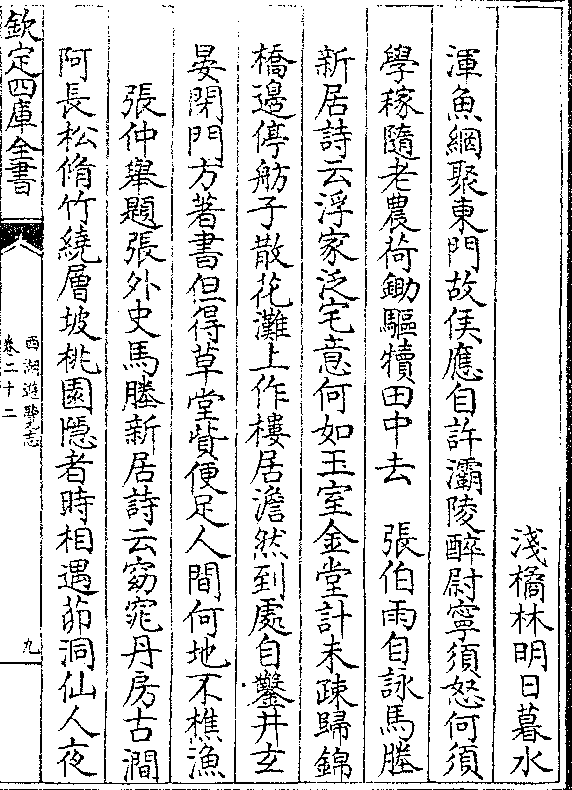 淺橘林明日暮水
渾魚網聚東門故侯應自許灞陵醉尉寧須怒何須
學稼隨老農荷鋤驅犢田中去　張伯雨自詠馬塍
新居詩云浮家泛宅意何如玉室金堂計未疎歸錦
橋邊停舫子散花灘上作樓居澹然到處自鑿井玄
晏閉門方著書但得草堂貲便足人間何地不樵漁
張仲舉題張外史馬塍新居詩云窈窕丹房古澗
阿長松脩竹繞層坡桃園隱者時相遇茆洞仙人夜
欽定四庫全書
西湖遊覽志
卷二十二
九